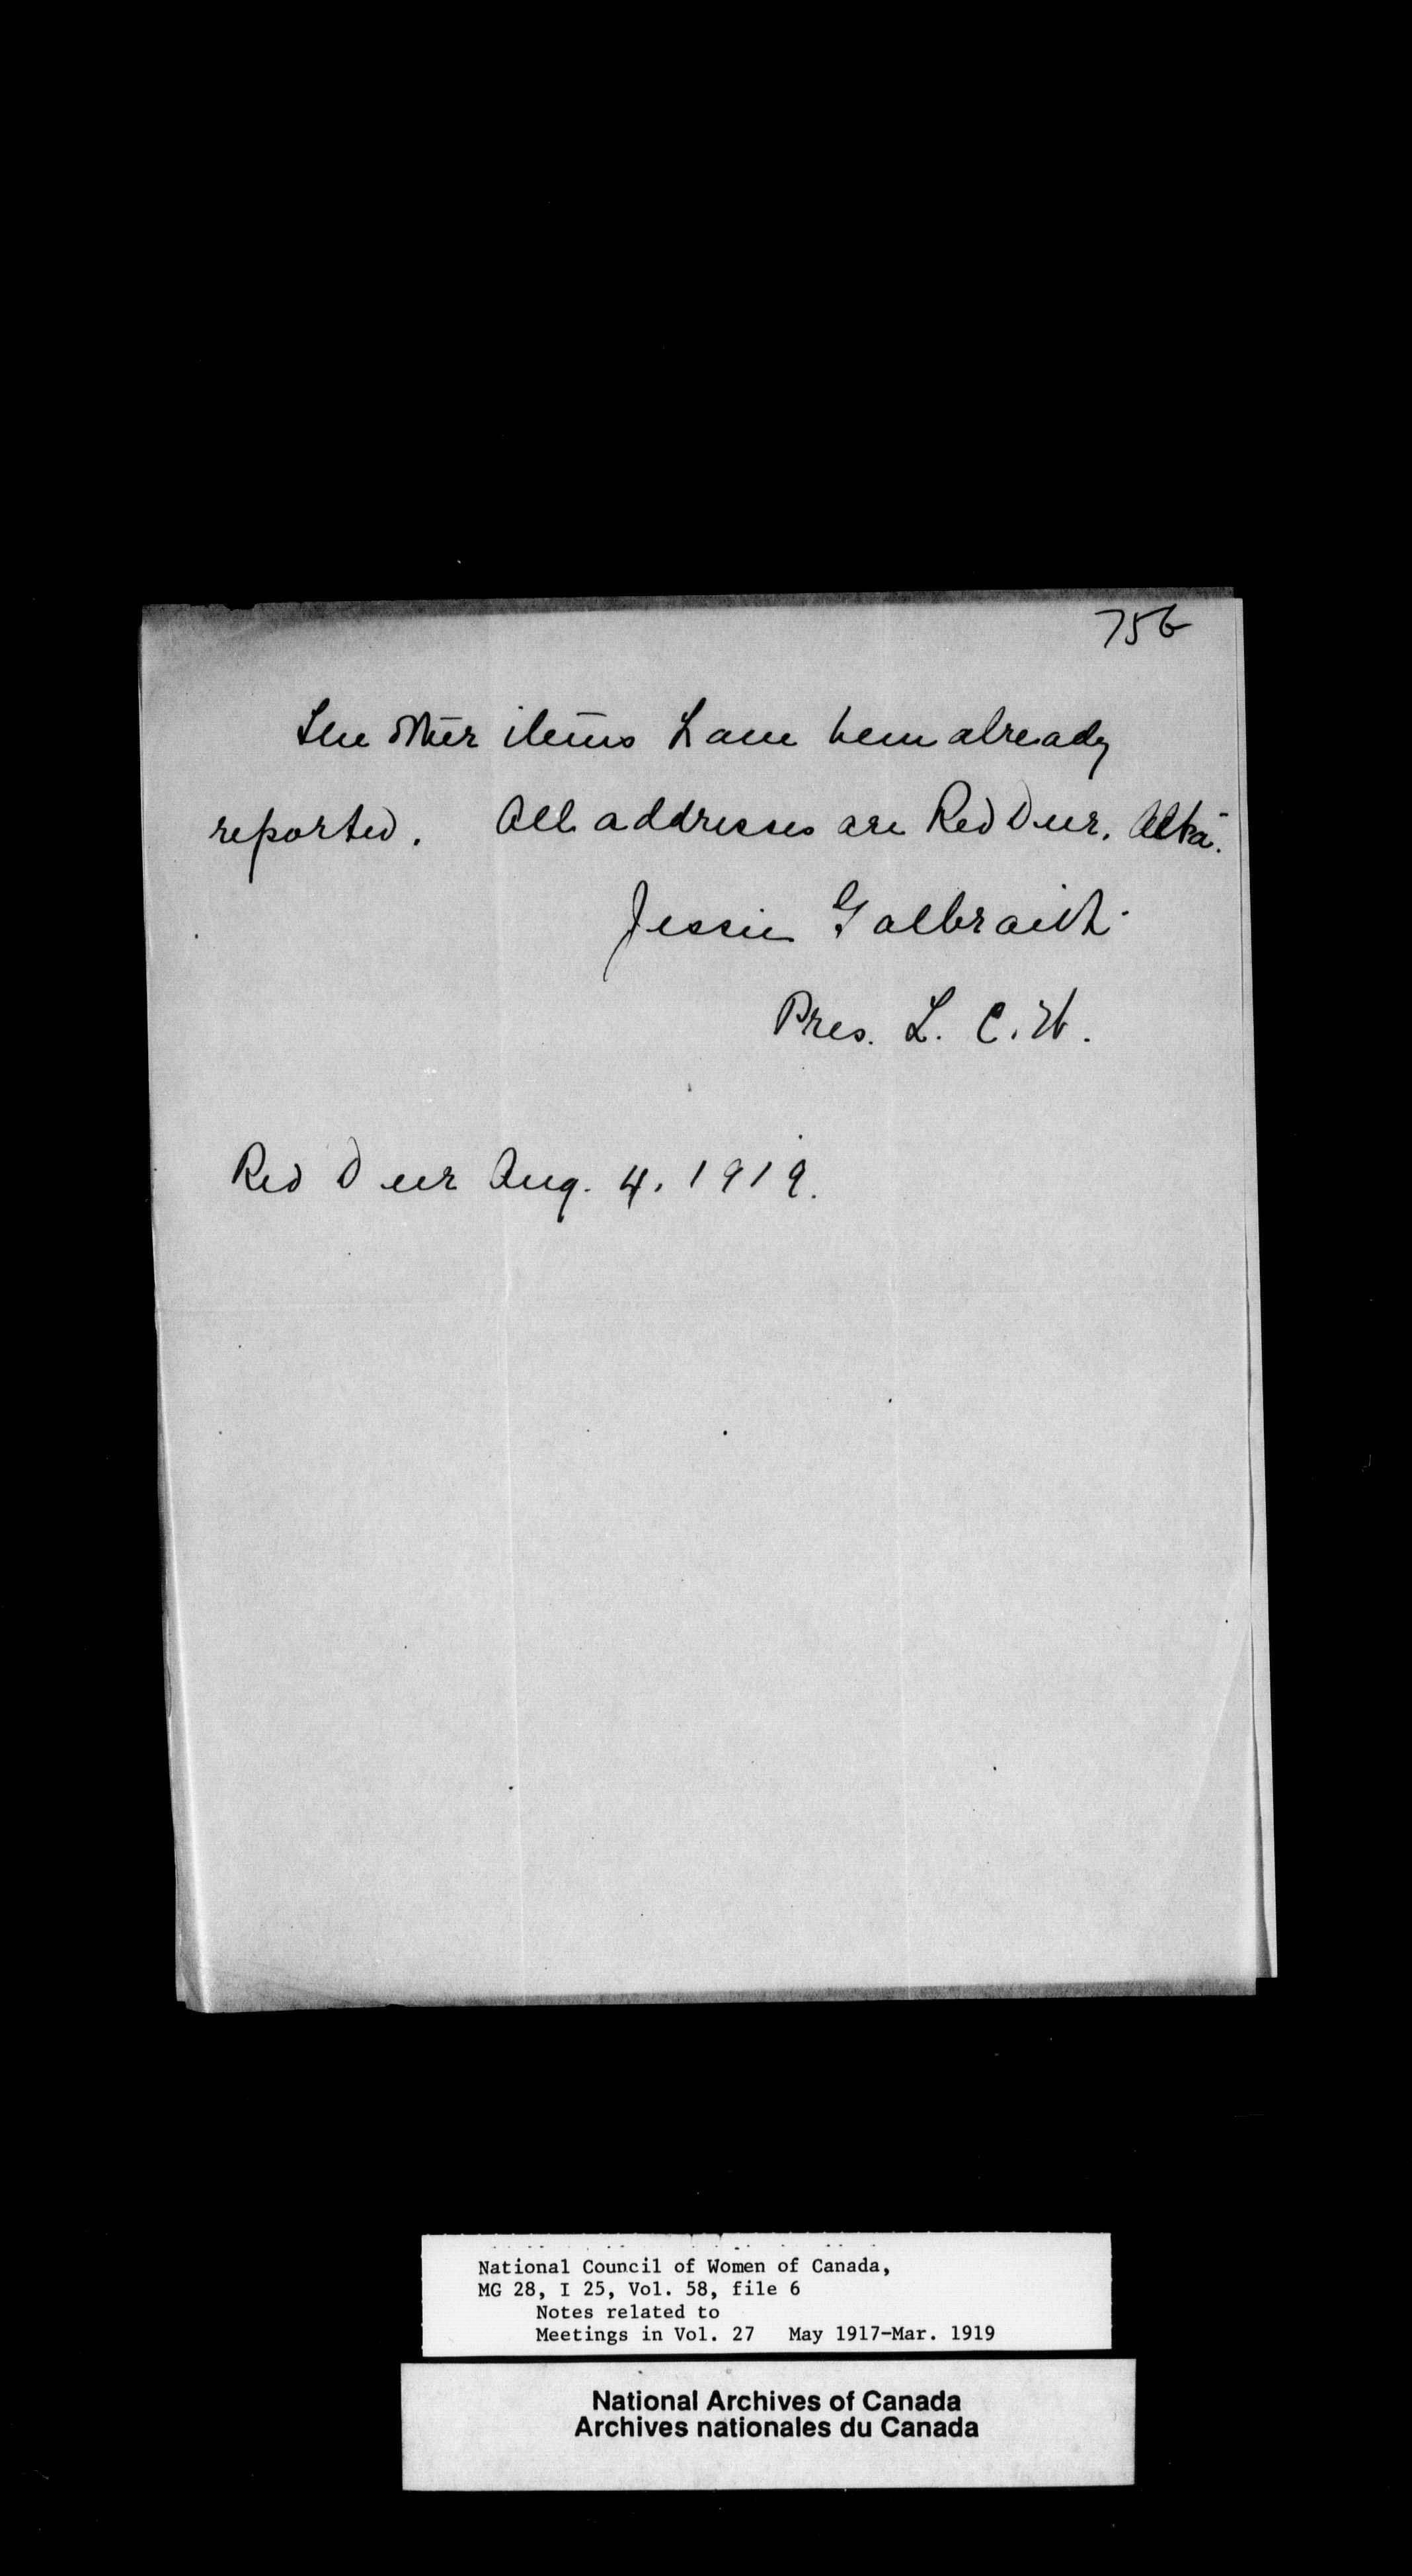 756
The other items have been already
reported. All addresses are Red Deer, Alta.
Jessie Galbraith
Pres. L. C. W.
Red Deer Aug. 4, 1919.
National Council of Women of Canada,
MG 28, I 25, Vol. 58, file 6
Notes related to
Meetings in Vol. 27 May 1917-Mar. 1919
National Archives of Canada
Archives nationales du Canada